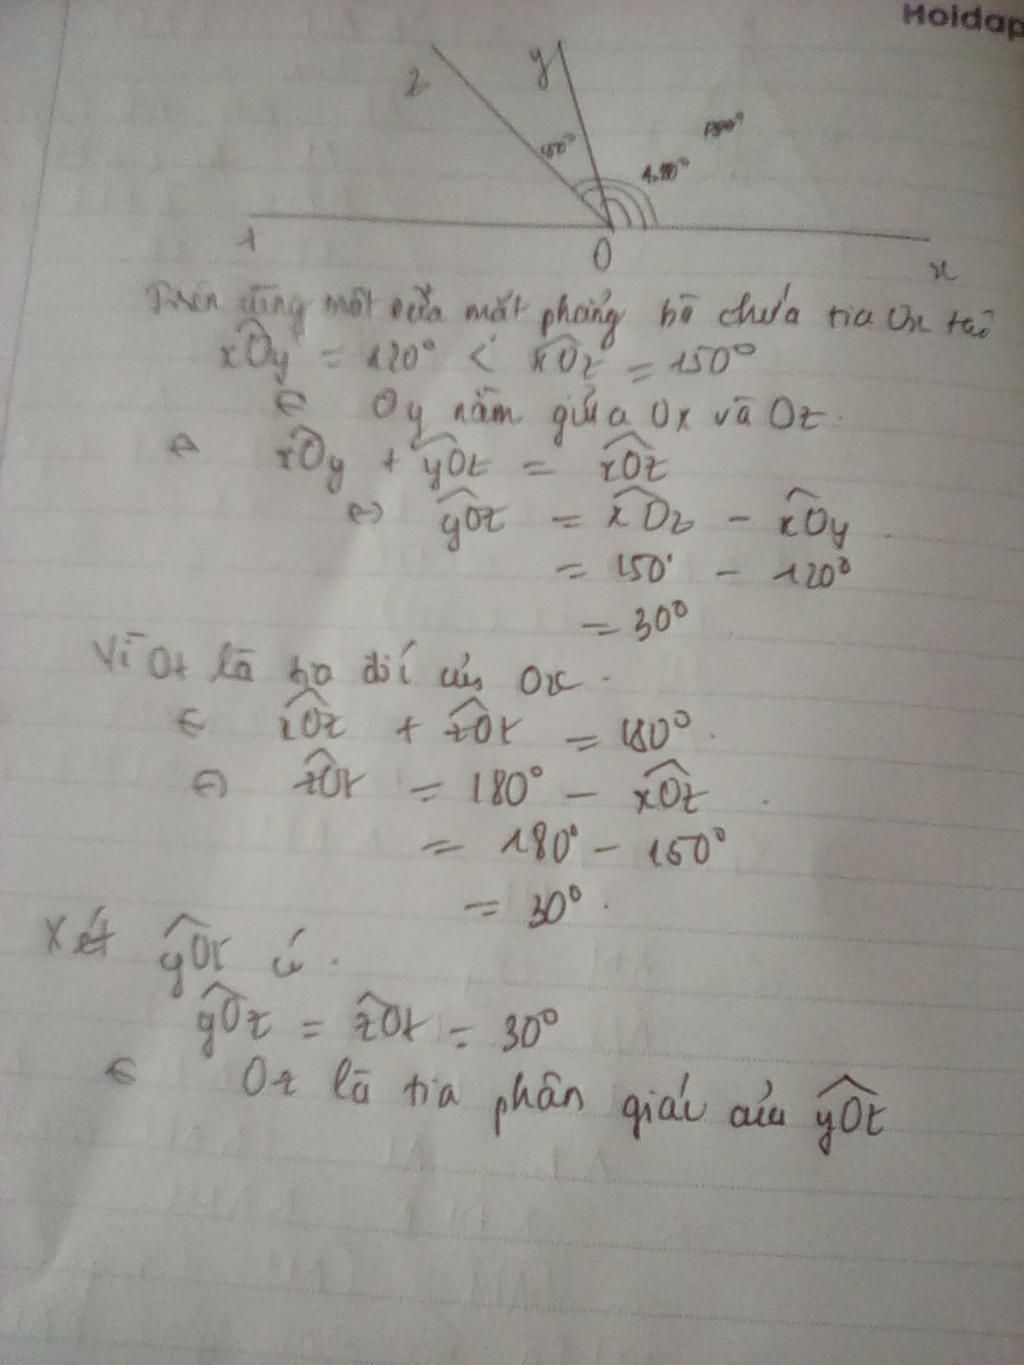 Hoidap
z
y
150°
O
x
Trên cùng một nửa mặt phẳng bờ chứa tia Ox ta có
xÔy = 120° < xÔz = 150°
Oy nằm giữa Ox và Oz.
xÔy + yÔz = xÔz
⇔ yÔz = xÔz - xÔy
= 150° - 120°
= 30°
Vì Ot là tia đối của Ox.
xÔz + zÔt = 180°.
zÔt = 180° - xÔz
= 180° - 150°
= 30°.
Xét yÔt có.
yÔz = zÔt = 30°
Oz là tia phân giác của yÔt